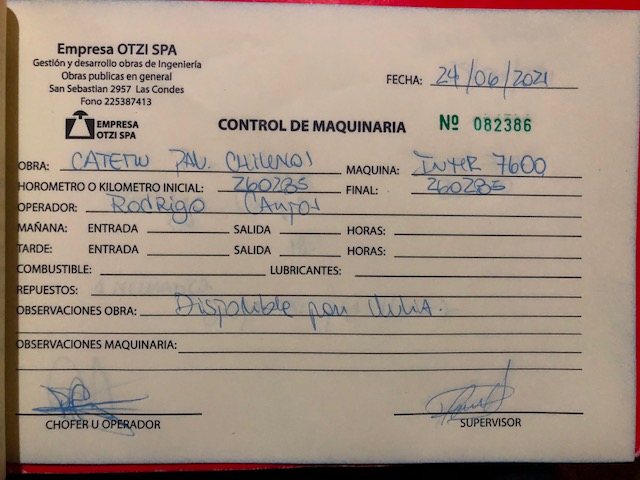 Empresa OTZI SPA
Gestión y desarrollo obras de Ingeniería
Obras publicas en general
San Sebastian 2957 Las Condes
Fono 225387413
FECHA: 24/06/2021
EMPRESA
OTZI SPA
CONTROL DE MAQUINARIA
Nº 082386
OBRA: PAV. CHILENOS MAQUINA: INTER 7600
HOROMETRO O KILOMETRO INICIAL: 260285 FINAL: 260285
OPERADOR: Rodrigo
MAÑANA: ENTRADA SALIDA HORAS:
TARDE: ENTRADA SALIDA HORAS:
COMBUSTIBLE: LUBRICANTES:
REPUESTOS:
OBSERVACIONES OBRA: Disponible por lluvia.
OBSERVACIONES MAQUINARIA:
CHOFER U OPERADOR
SUPERVISOR